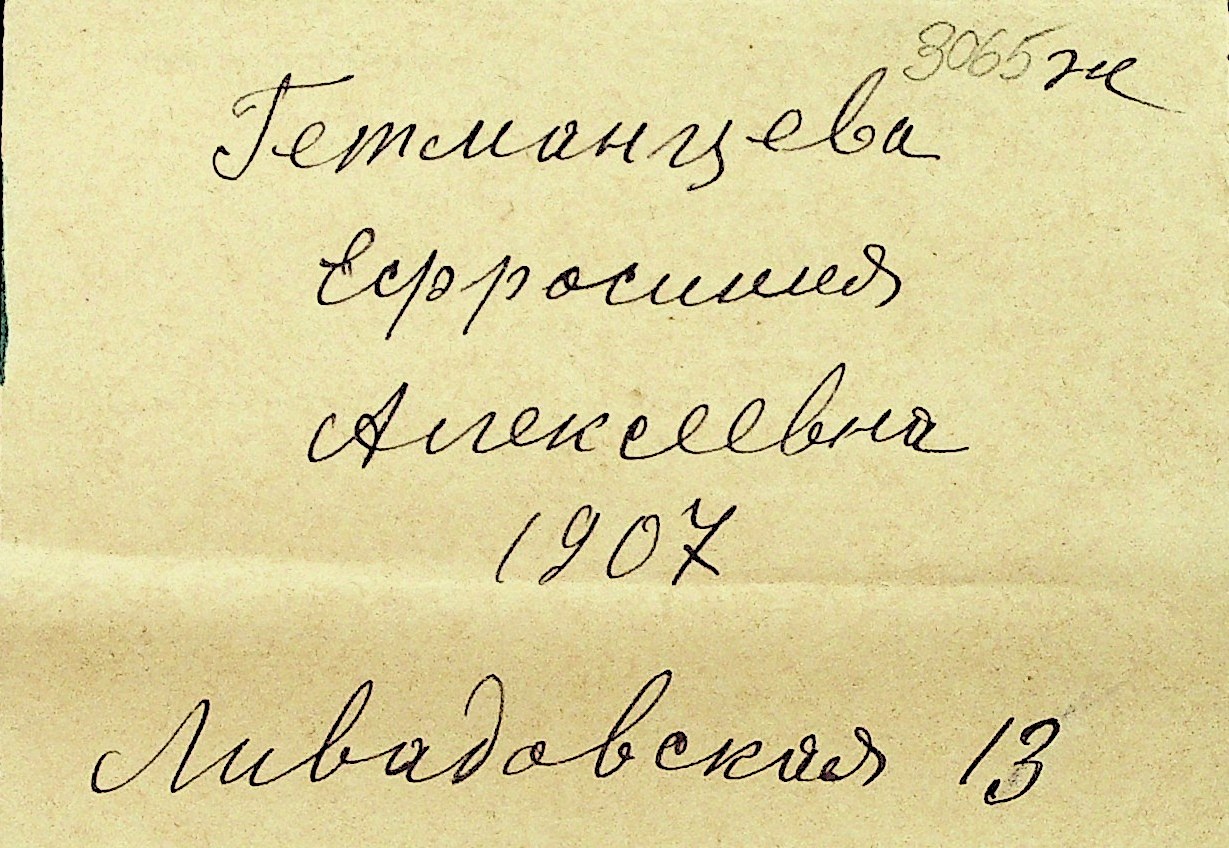 3065 ж
Гетманцева
Ефросиния
Алексеевна
1907
Ливадовская 13